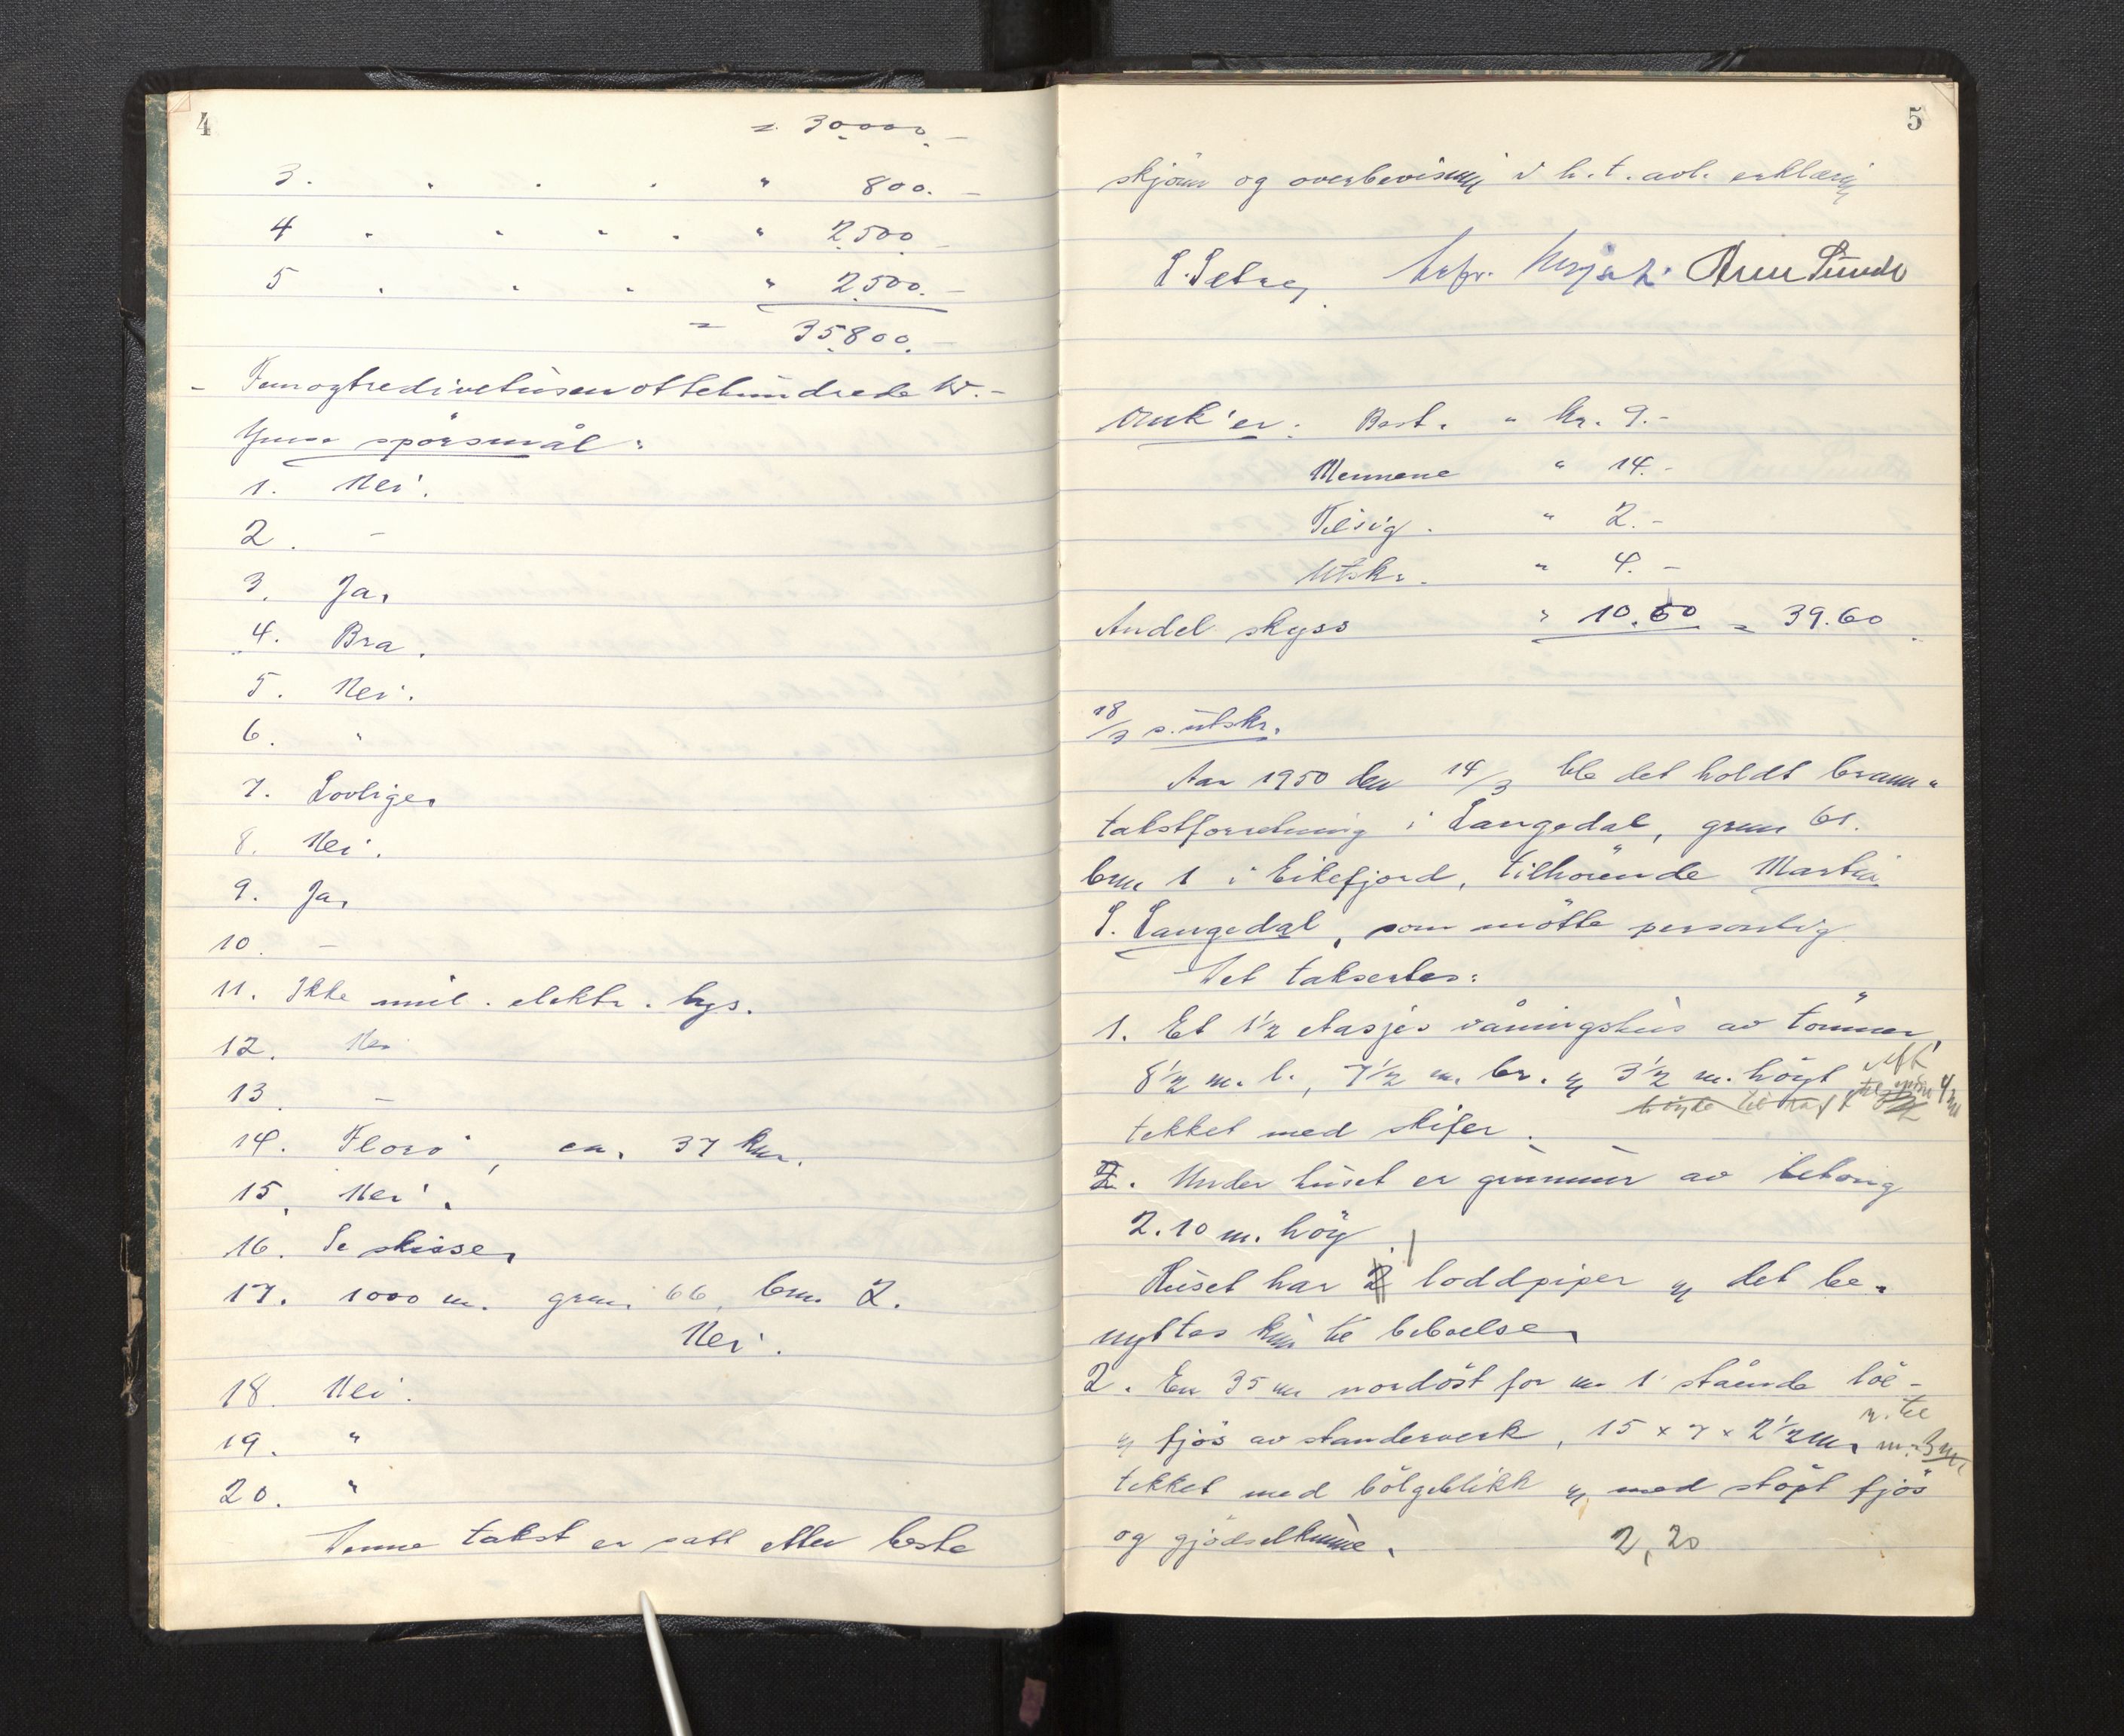 4
= 30.000.-
3. " " " " 800.-
4 " " " " " 2.500-
5 " " " " 2.500.-
= 35.800.-
- Femogtredivetusenottehundrede kr.-
spörsmål:
1. Nei.
2. -
3. Ja.
4. Bra.
5. Nei.
6. "
7. Lovlige.
8. Nei.
9. Ja.
10. -
11. Ikke inst. elektr. lys.
12. Nei
13. -
14. Florö, ca. 37 km.
15. Nei.
16. Se skisse.
17. 1000 m. grnr. 66, bnr. 2.
Nei.
18. Nei.
19. "
20. "
Denne takst er satt etter beste
5
skjönn og overbevisning i h.t. avl. erklæring
S. Sebrey Arne Sunde
Omk'er: Best. " kr. 9.-
Mennene " 14.-
Tilsig. " 2.-
Utskr. " 4.-
Andel skyss " 10.60 = 39.60
18/3 s. utskr.
Aar 1950 den 14/3 ble det holdt brann-
takstforretning i Langedal, grnr 61.
bnr 1 i Eikefjord, tilhörende Martin
S. Langedal, som mötte personlig
Det takseres:
1. Et 1½ etasjes våningshus av tömmer,
8½ m. l., 7½ m. br. og 3½ m. högt
til 4½ m
höyde til raft
tekket med skifer.
2. Under huset er grunmur av betong
2.10 m. höy.
1
Huset har 2 loddpiper og det be-
nyttes kun til beboelse.
2. En 35 m nordöst for nr 1 stående löe-
og fjös av standerverk, 15 x 7 x 2½ m. m. 3 m
tekket med bölgeblikk og med stöpt fjös
og gjödselkum. 2,20